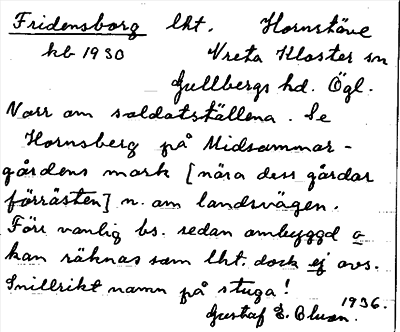 Fridensborg lht. Hornstöve
kb 1930 Vreta Kloster sn
Gullbergs hd. Ögl.
Norr om soldatställena. Se
Hornsberg på Midsommar-
gårdens mark [nära dess gårdar
förrästen] n. om landsvägen.
Förr vanlig bs. sedan ombyggd o
kan räknas som lht. dock ej avs.
Snillrikt namn på stuga!
1936.
Gustaf E. Bluon.